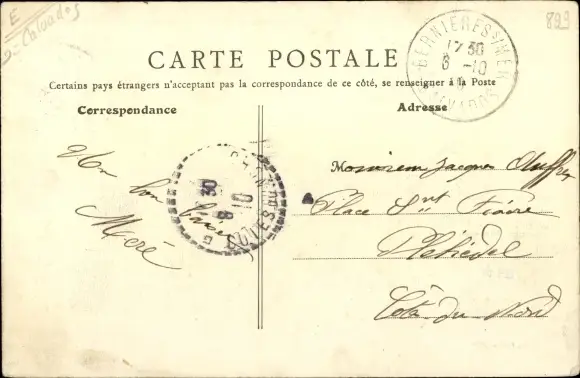 E
Calvados
899
BERNIERES S/ MER
17 30
6 -10
CALVADOS
CARTE POSTALE
Certains pays étrangers n'acceptant pas la correspondance de ce côté, se renseigner à la Poste
Correspondance
Adresse
Un bon baiser
Meré
30
8 10
COTES DU NORD
Monsieur Jacques
Place
Pléhédel
Côte du Nord